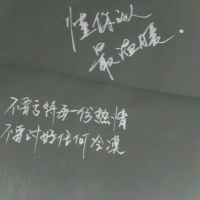 懂你的人
最温暖.
不要亏待每一份热情
不要讨好任何冷漠